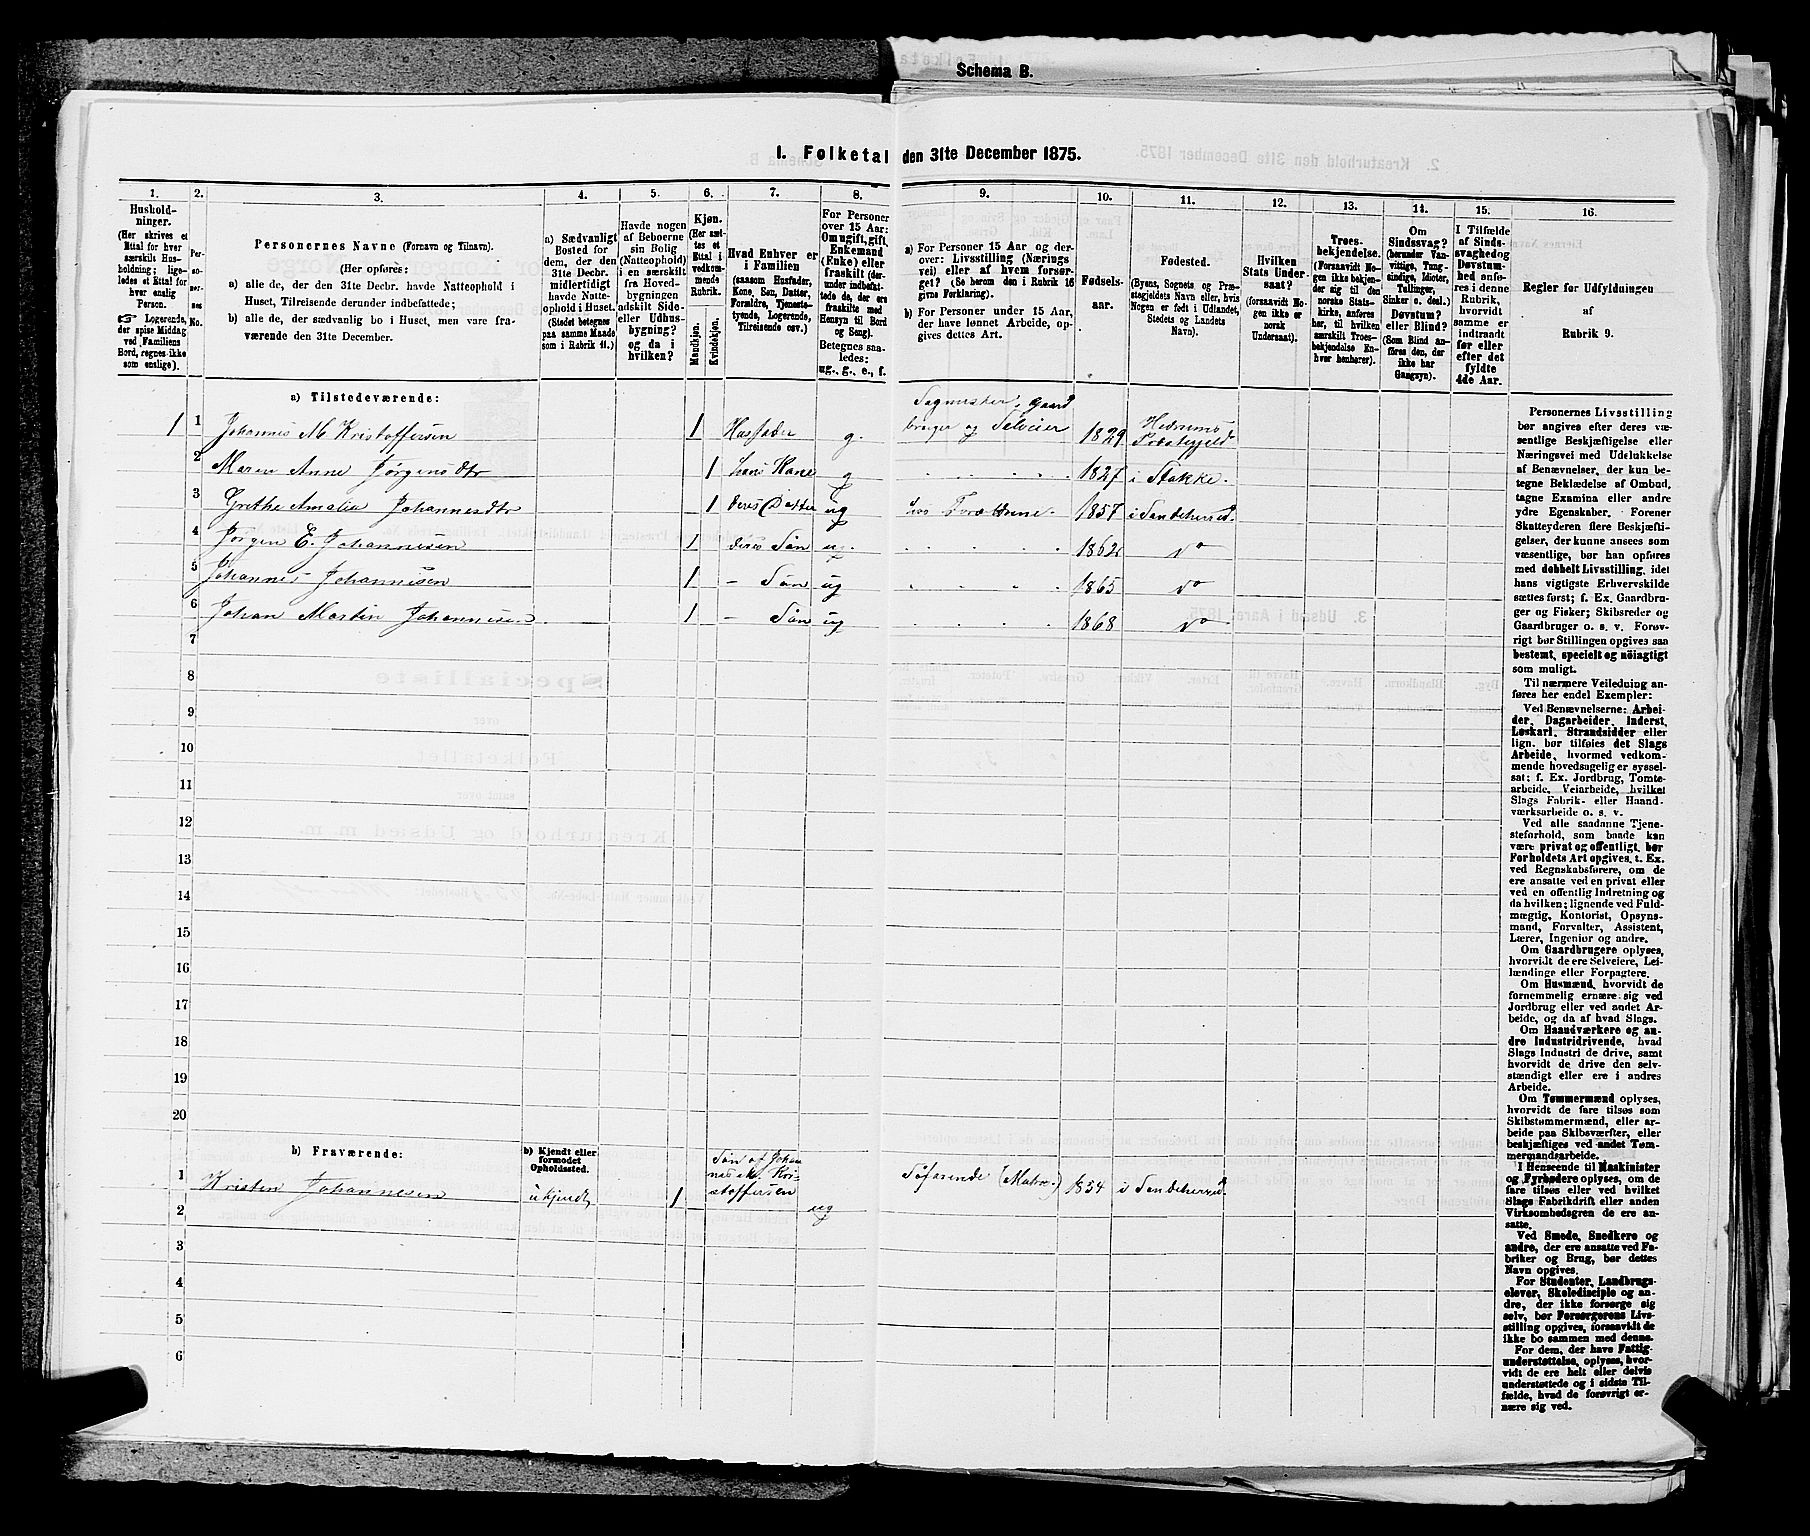 Schema B.
1. Folketal den 31te December 1875.
1. 2. 3. 4. 5. 6. 7. 8. 9. 10. 11. 12. 13. 14. 15. 16.
Hushold-
ninger.
(Her skrives et
Ettal for hver
særskilt Hus-
holdning; lige-
ledes et Ettal for
hver enslig
Person.
☞ Logerende,
der spise Middag
ved Familiens
Bord, regnes ikke
som enslige).
Per-
so-
ner-
nes
No.
Personernes Navne (Fornavn og Tilnavn).
(Her opføres:
a) alle de, der den 31te Decbr. havde Natteophold i
Huset, Tilreisende derunder indbefattede;
b) alle de, der sædvanlig bo i Huset, men vare fra-
værende den 31te December.
a) Sædvanligt
Bosted for
dem, der den
31te Decbr.
midlertidigt
havde Natte-
ophold i Huset.
(Stedet betegnes
paa samme Maade
som i Rubrik 11.)
Havde nogen
af Beboerne
sin Bolig
(Natteophold)
i en særskilt
fra Hoved-
bygningen
adskilt Side-
eller Udhus-
bygning?
og da i
hvilken?
Kjøn.
(Her sæt-
tes et
Ettal i
vedkom-
mende
Rubrik.
Mandkjøn.
Kvindekjøn.
Hvad Enhver er
i Familien
(saasom Husfader,
Kone, Søn, Datter,
Forældre, Tjeneste-
tyende, Logerende,
Tilreisende osv.)
For Personer
over 15 Aar:
Om ugift, gift,
Enkemand
(Enke) eller
fraskilt (der-
under indbefat-
tede de, der ere
fraskilte med
Hensyn til Bord
og Seng).
Betegnes saa-
ledes:
ug., g., e., f.
a) For Personer 15 Aar og der-
over: Livsstilling (Nærings
vei) eller af hvem forsør-
get? (Se herom den i Rubrik 16
givne Forklaring).
b) For Personer under 15 Aar,
der have lønnet Arbeide, op-
gives dettes Art.
Fødsels-
aar.
Fødested.
(Byens, Sognets og Præ-
stegjeldets Navn eller, hvis
Nogen er født i Udlandet,
Stedets og Landets
Navn).
Hvilken
Stats Under-
saat?
(forsaavidt No-
gen ikke er
norsk
Undersaat).
Troes-
bekjendelse.
(Forsaavidt No-
gen ikke bekjen-
der sig til den
norske Stats-
kirke, anføres
her, til hvilken
særskilt Troes-
bekjendelse En-
hver henhører).
Om
Sindssvag?
(herunder Van-
vittige, Tung-
sindige, Idioter,
Tullinger,
Sinker o. desl.)
Døvstum?
eller Blind?
(Som Blind an-
føres den, der
ikke har
Gangsyn).
I Tilfælde
af Sinds-
svaghed og
Døvstum-
hed anfø-
res i denne
Rubrik,
hvorvidt
samme er
indtraadt
før eller
efter det
fyldte
4de Aar.
Regler for Udfyldningen
af
Rubrik 9.
a) Tilstedeværende:
1 1 Johannes M Kristoffersen 1 Husfader g. Sagmester, Gaard
bruger og Selveier 1829 Hedrums
Præstegjeld
2 Maren Anne Jørgensdtr 1 hans Kone g 1827 i Stokke.
3 Grethe Amalia Johannesdtr 1 deres Datter ug hos Forældrene. 1857 i Sandeherred.
4 Jørgen E. Johannesen 1 deres Søn ug. 1862 do
5 Johannes Johannesen 1 – Søn ug 1865 do
6 Johan Martin Johannesen 1 – Søn ug 1868 do
7
8
9
10
11
12
13
14
15
16
17
18
19
20
b) Fraværende:
b) Kjendt eller
formodet
Opholdssted.
1 Kristen Johannesen ukjendt 1 Søn af Johan
nes M. Kri-
stoffersen ug Søfarende (Matros) 1854 i Sandeherred.
2
3
4
5
6
Personernes Livsstilling
bør angives efter deres væ-
sentlige Beskjæftigelse eller
Næringsvei med Udelukkelse
af Benævnelser, der kun be-
tegne Beklædelse af Ombud,
tagne Examina eller andre
ydre Egenskaber. Forener
Skatteyderen flere Beskjæfti-
gelser, der kunne ansees som
væsentlige, bør han opføres
med dobbelt Livsstilling, idet
hans vigtigste Erhvervskilde
sættes først; f. Ex. Gaardbru-
ger og Fisker; Skibsreder og
Gaardbruger o. s. v. Forøv-
rigt bør Stillingen opgives saa
bestemt, specielt og nøiagtigt
som muligt.
Til nærmere Veiledning an-
føres her endel Exempler:
Ved Benævnelserne: Arbei-
der, Dagarbeider, Inderst,
Løskarl, Strandsidder eller
lign. bør tilføies det Slags
Arbeide, hvormed vedkom-
mende hovedsagelig er syssel-
sat; f. Ex. Jordbrug, Tomte-
arbeide, Veiarbeide, hvilket
Slags Fabrik- eller Haand-
værksarbeide o. s. v.
Ved alle saadanne Tjene-
steforhold, som baade kan
være privat og offentligt, bør
Forholdets Art opgives, t. Ex.
ved Regnskabsførere, om de
ere ansatte ved en privat eller
ved en offentlig Indretning og
da hvilken; lignende ved Fuld-
mægtig, Kontorist, Opsyns-
mand, Forvalter, Assistent,
Lærer, Ingeniør og andre.
Om Gaardbrugere oplyses,
hvorvidt de ere Selveiere, Lei-
lændinge eller Forpagtere.
Om Husmænd, hvorvidt de
fornemmelig ernære sig ved
Jordbrug eller ved andet Ar-
beide, og da af hvad Slags.
Om Haandværkere og an-
dre Industridrivende, hvad
Slags Industri de drive, samt
hvorvidt de drive den selv-
stændigt eller ere i andres
Arbeide.
Om Tømmermænd oplyses,
hvorvidt de fare tilsøs som
Skibstømmermænd, eller ar-
beide paa Skibsværfter, eller
beskjæftiges ved andet Tøm-
mermandsarbeide.
I Henseende til Maskinister
og Fyrbødere oplyses, om de
fare tilsøs eller ved hvilket
Slags Fabrikdrift eller anden
Virksomhedsgren de ere an-
satte.
Ved Smede, Snedkere og
andre, der ere ansatte ved Fa-
briker og Brug, bør dettes
Navn opgives.
For Studenter, Landbrugs-
elever, Skoledisciple og an-
dre, der ikke forsørge sig
selv, bør Forsørgerens Livs-
stilling opgives, forsaavidt de
ikke bo sammen med denne.
For dem, der have Fattig-
understøttelse, oplyses, hvor-
vidt de ere helt eller delvis
understøttede og i sidste Til-
fælde, hvad de forøvrigt er-
nære sig ved.